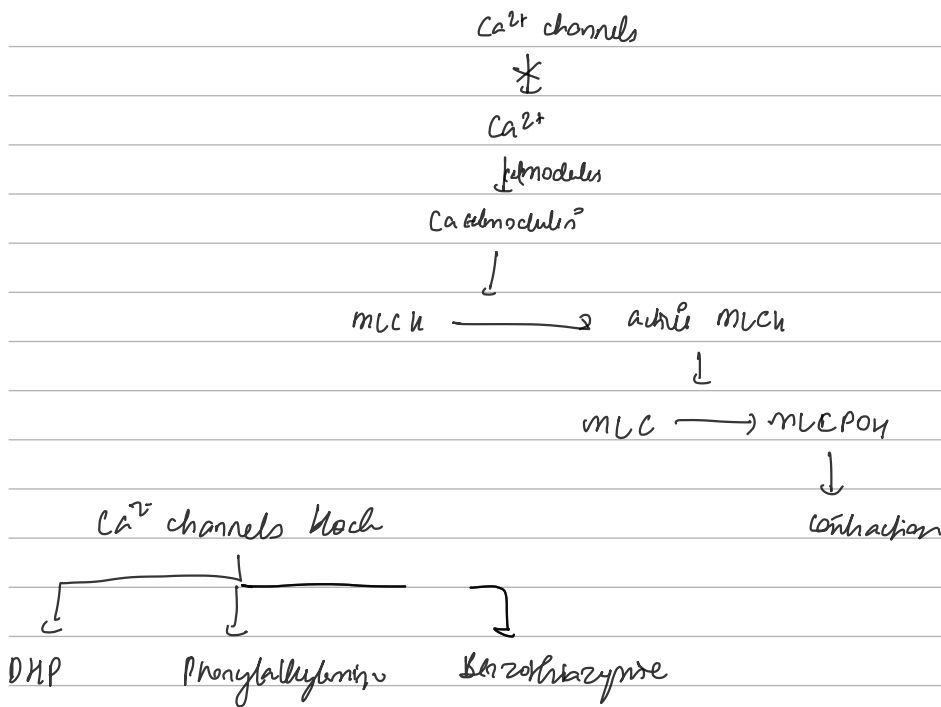 Ca²⁺ channels
Ca²⁺
Ca
MLCK active MLCK
MLC MLCPO4
contraction
Ca²⁻ channels block
DHP Phenylalkylamine Benzothiazepine